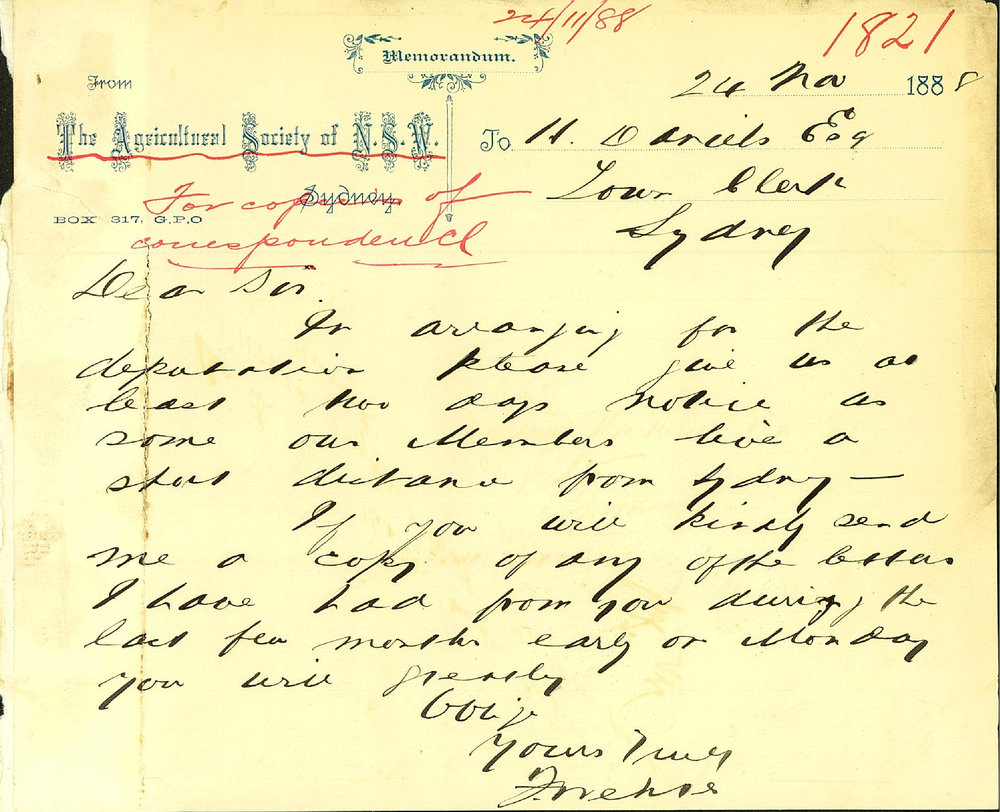 24/11/88
1821
Memorandum.
24 Nov 1888
From
The Agricultural Society of N.S.W.
Sydney
BOX 317, G.P.O
For copies of
correspondence
To H. Daniels Esq
Town Clerk
Sydney
Dear Sir.
In arranging for the
deputation please give us at
least two days notice as
some our Members live a
short distance from Sydney —
If you will kindly send
me a copy of any of the letters
I have had from you during the
last few months early on Monday
you will greatly
Oblige
Yours Truly